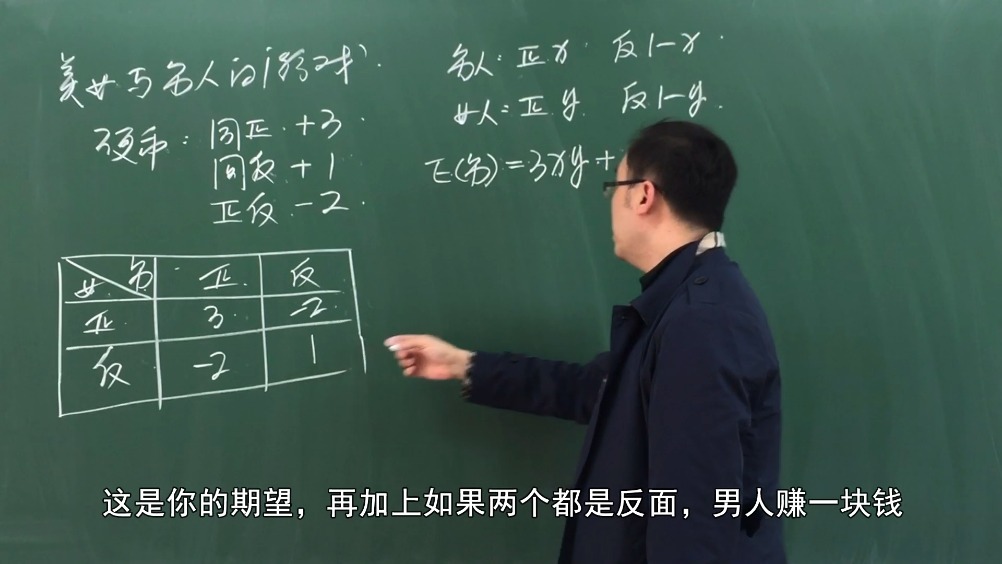 美女与男人的博弈
硬币：同正 +3
同反 +1
正反 -2
男人：正 x 反 1-x
女人：正 y 反 1-y
E(男)=3xy+
男 正 反
女
正 3 -2
反 -2 1
这是你的期望，再加上如果两个都是反面，男人赚一块钱